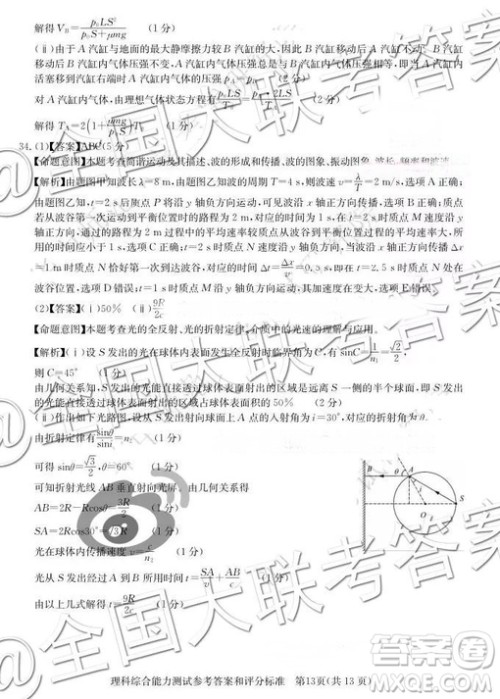 解得 V_B=p₀LS²/(p₀S+μmg) (1分)
(ⅱ)由于 A 汽缸与地面的最大静摩擦力较 B 汽缸的大,因此 B 汽缸移动后 A 汽缸不动,B 汽缸
移动后 B 汽缸内气体压强不变,A 汽缸内气体压强总是与 B 汽缸内气体压强相等,即当 A 内
活塞移到汽缸右端时 A 汽缸内气体的压强 p_A=p (1分)
对 A 汽缸内气体,由理想气体状态方程有 p₀LS/T₀=p·2LS/T (2分)
解得 T_A=2(1+μmg/p₀S)T (1分)
34.(1)【答案】ABC(5分)
【命题意图】本题考查简谐运动及其描述,波的形成和传播,波的图象,振动图象,波长、频率和波速
【解析】由题图甲知波长λ=8 m,由题图乙知波的周期 T=4 s,则波速 v=λ/T=2 m/s,选项 A 正确;
由题图乙知,t=2 s后质点 P 将沿 y 轴负方向运动,可见波沿 x 轴正方向传播,选项 B 正确;质点
若从波谷第一次到达平衡位置通过的路程为 2 m,对应的时间为 1 s,在 t=2 s时质点 M 速度沿 y
轴正方向,则质点通过 2 m 路程的过程中的平均速率大于从波谷到平衡位置过程的平均速率大,所
用的时间应小于 1 s,选项 C 正确;t=2 s时质点 N 速度沿 y 轴负方向,当波沿 x 轴正方向传播Δx
=1 m 时质点 N 恰好第一次到达波谷,对应的时间Δt=Δx/v=0.5 s,即在 t=2.5 s时质点 N 处在
波谷位置,选项 D 错误;t=2 s时质点 M 沿 y 轴正方向运动,其加速度在变大,选项 E 错误。
(2)【答案】(ⅰ)50% (ⅱ)9R/2c
【命题意图】本题考查光的全反射、光的折射定律,介质中光速与折射率的关系
【解析】(ⅰ)设 S 发出的光在球体内表面发生全反射时临界角为 C,有 sinC=1/n₁=√2/2,
则 C=45° (1分)
由几何关系知,S 发出的光能直接透过球体表面射出的区域为球体表面上远离 S 一侧的半个球面,即 S 发出
的光能直接透过球体表面射出的区域占球体表面积的 50% (2分)
(ⅱ)作出如下光路图,设从 S 发出的光射向球面上 A 点的入射角为 i=30°,对应的折射角为θ,
由折射定律有 sinθ/sini=n₂ (1分)
可得 sinθ=√3/2,θ=60° (1分)
可知折射光线 AB 垂直射向光屏,由几何关系得
AB=2R-Rcosθ=3R/2 (1分)
SA=2Rcos30°=√3R (1分)
光在球体内传播速度 v=c/n₂ (1分)
光从 S 发出经过 A 到 B 所用时间 t=SA/v+AB/c (1分)
由以上几式解得 t=9R/2c (1分)
B
A
θ
i
S
理科综合能力测试参考答案和评分标准 第13页(共 13 页)
@全国大联考答案